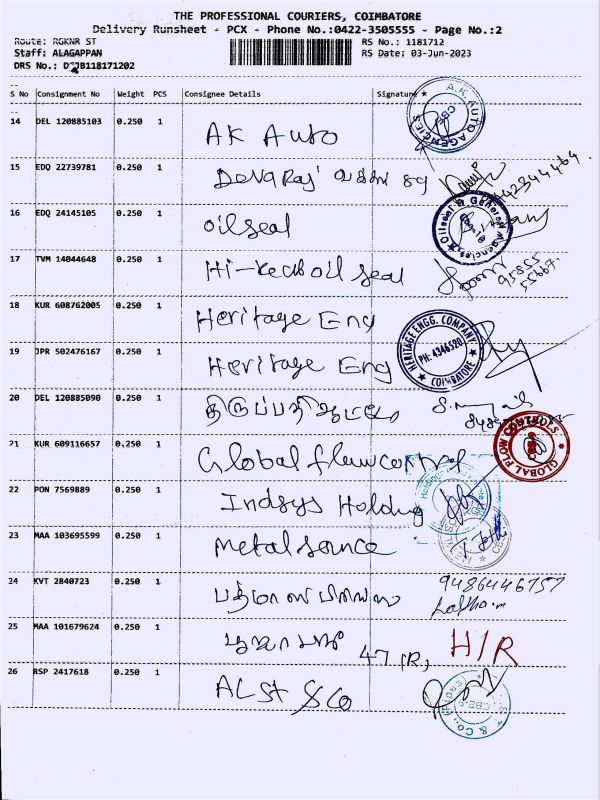 THE PROFESSIONAL COURIERS, COIMBATORE
Delivery Runsheet - PCX - Phone No.:0422-3505555 - Page No.:2
Route: RGKNR ST
RS No.: 1181712
Staff: ALAGAPPAN
RS Date: 03-Jun-2023
DRS No.: JB118171202
S No Consignment No Weight PCS Consignee Details Signature
14 DEL 120885103 0.250 1 AK Auto
A.K. AUTO AGENCIES CBE
15 EDQ 22739781 0.250 1 Devaraj
16 EDQ 24145105 0.250 1 oilseal
Oilseal & General Agencies
17 TVM 14044648 0.250 1 Hi-Tech oil seal
95855
18 KUR 608762005 0.250 1 Heritage Eng
HERITAGE ENGG. COMPANY PH: 4346520 COIMBATORE
19 JPR 502476167 0.250 1 Heritage Eng
20 DEL 120885090 0.250 1
21 KUR 609116657 0.250 1 Global flow control
GLOBAL FLOW CONTROLS
22 PON 7569889 0.250 1 Indsys Holding
23 MAA 103695599 0.250 1 Metal source
24 KVT 2840723 0.250 1
9486446757
25 MAA 101679624 0.250 1 47 (R) H/R
26 RSP 2417618 0.250 1 AL St & Co